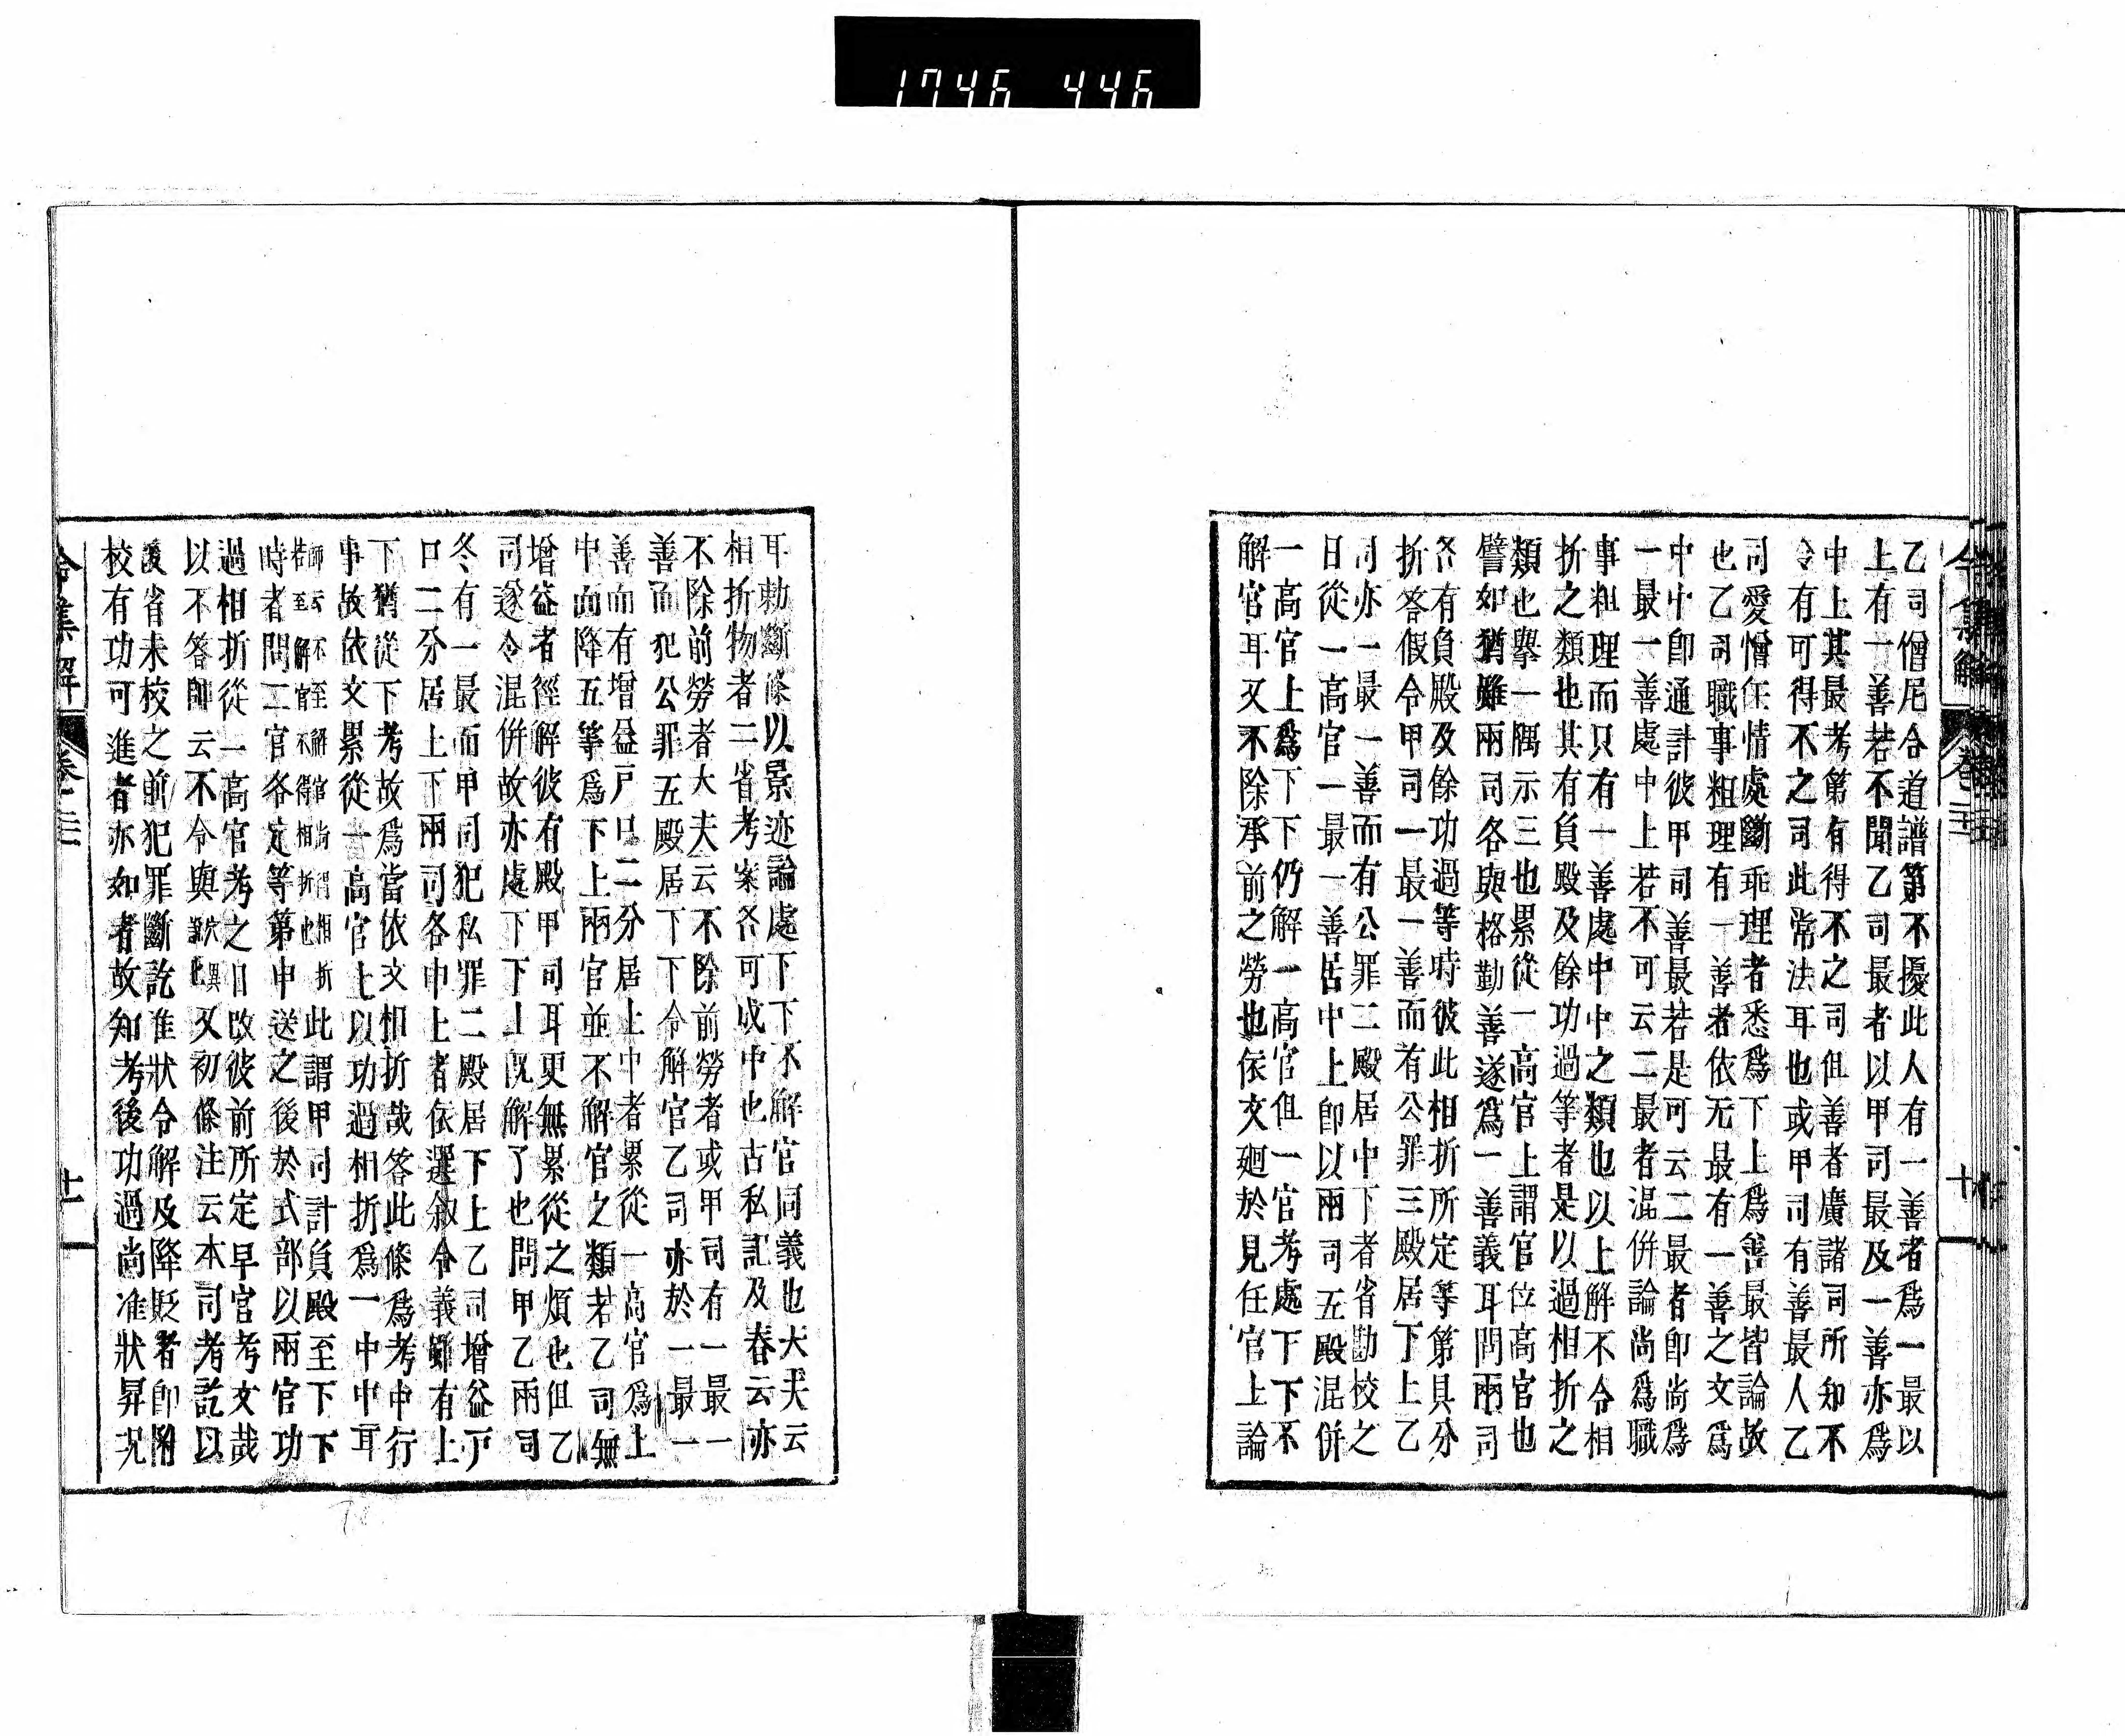 1746 446
乙司僧尼合道譜第不擾此人有一善者爲一最以
上有一善若不聞乙司最者以甲司最及一善亦爲
中上其最考第有得不之司但善者廣諸司所知不
令有可得不之司此常法耳也或甲司有善最人乙
司愛憎任情處斷乖理者悉爲下上爲善最皆論故
也乙司職事粗理有一善者依无最有一善之文爲
中中卽通計彼甲司善最若是可云二最者卽尚爲
一最一善處中上若不可云二最者混併論尚爲職
事粗理而只有一善處中中之類也以上解不合相
折之類也其有負殿及餘功過等者是以過相折之
類也擧一隅示三也累從一高官上謂官位高官也
譬如猶雖兩司各與格勤善遂爲一善義耳問兩司
各有負殿及餘功過等時彼此相折所定等第具分
折答假令甲司一最一善而有公罪三殿居下上乙
司亦一最一善而有公罪二殿居中下者省勘校之
日從一高官一最一善居中上卽以兩司五殿混併
一高官上爲下下仍解一高官但一官考處下下不
解官耳又不除承前之勞也依文廻於見任官上論
耳勅斷條以景迹論處下下不解官同義也大夫云
相折物者二省考案各可成中也古私記及春云亦
不除前勞者大夫云不除前勞者或甲司有一最一
善而犯公罪五殿居下下合解官乙司亦於一最一
善而有增益戶口二分居上中者累從一高官爲上
中而降五等爲下上兩官並不解官之類若乙司無
增益者徑解彼有殿甲司耳更無累從之煩也但乙
司遂令混併故亦處下下上既解了也問甲乙兩司
冬有一最而甲司犯私罪二殿居下上乙司增益戶
口二分居上下兩司各中上者依選敘令義雖有上
下猶從下考故爲當依文相折哉答此條爲考中行
事故依文累從一高官上以功過相折爲一中中耳
師云不至解官尚得相折
若至解官不得相折也
此謂甲司計負殿至下下
時者問二官各定等第申送之後於式部以兩官功
過相折從一高官考之日改彼前所定早官考文哉
以不答師云不令與
又初條注云本司考訖以
後省未校之前犯罪斷訖准狀令解及降貶者卽附
校有功可進者亦如者故知考後功過尚准狀昇况
令集解
卷二十二
十